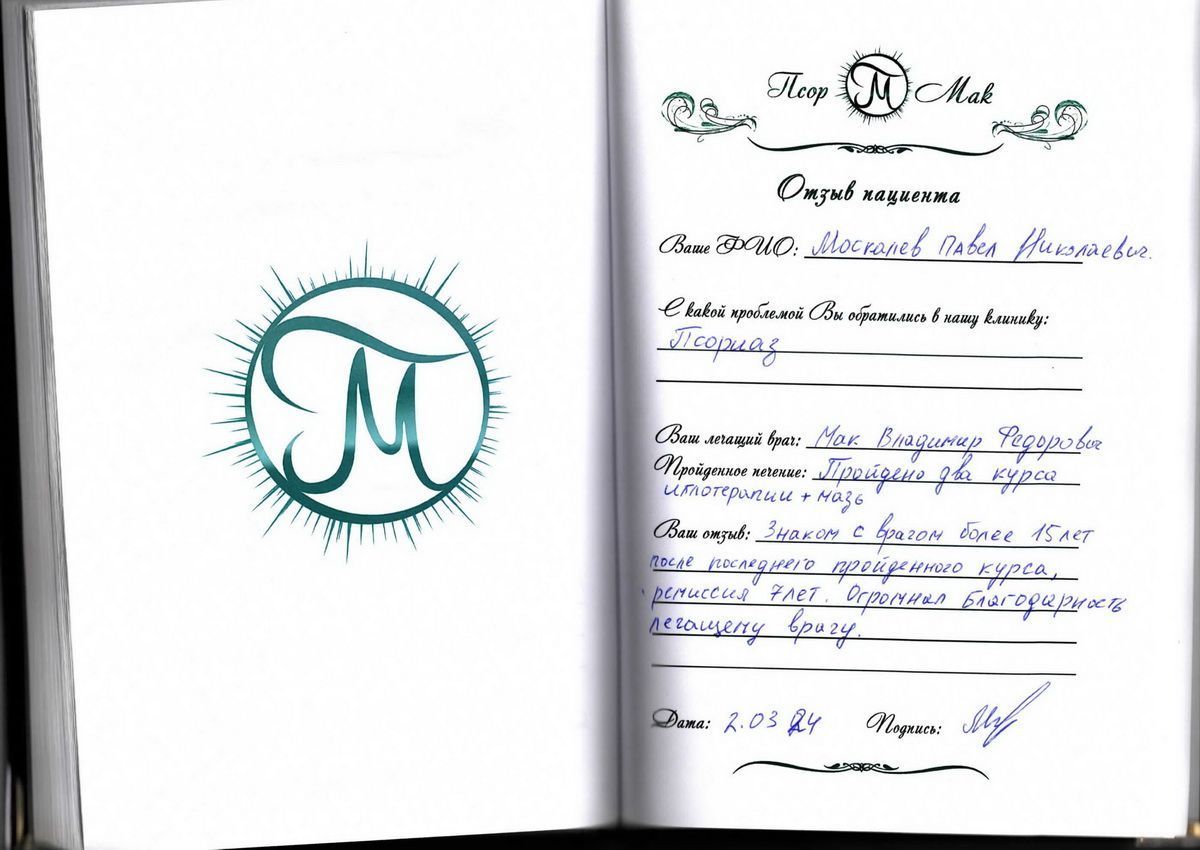 Псор ПМ Мак
Отзыв пациента
Ваше ФИО: Москалев Павел Николаевич.
С какой проблемой Вы обратились в нашу клинику:
Псориаз
Ваш лечащий врач: Мак Владимир Федорович
Пройденное лечение: Пройдено два курса
иглотерапии + мазь
Ваш отзыв: Знаком с врачом более 15 лет
после последнего пройденного курса,
ремиссия 7 лет. Огромная благодарность
лечащему врачу.
Дата: 2.03 24 Подпись:
ПМ